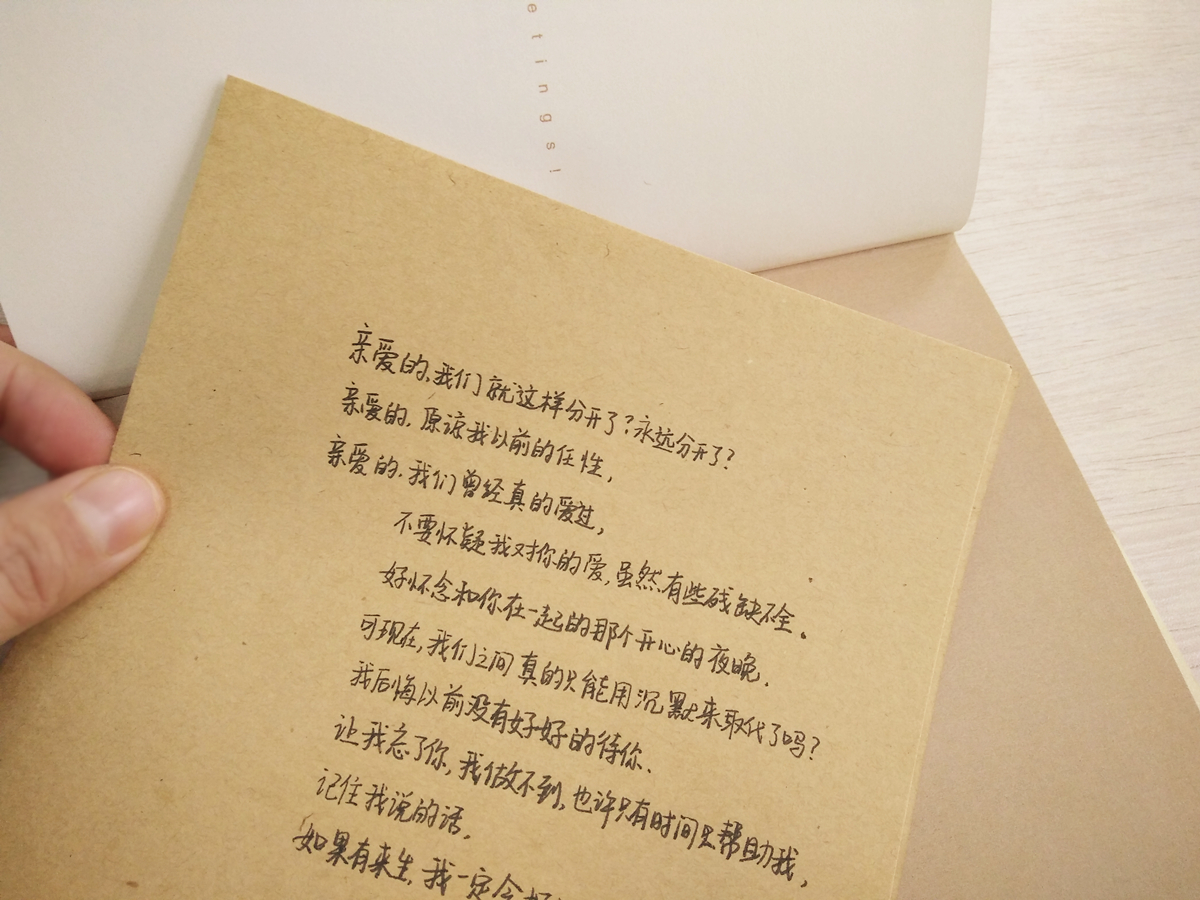 etings!
亲爱的,我们就这样分开了?永远分开了?
亲爱的,原谅我以前的任性,
亲爱的,我们曾经真的爱过,
不要怀疑我对你的爱,虽然有些残缺不全。
好怀念和你在一起的那个开心的夜晚.
可现在,我们之间真的只能用沉默来取代了吗?
我后悔以前没有好好的待你.
让我忘了你,我做不到,也许只有时间只帮助我,
记住我说的话,
如果有来生,我一定会好